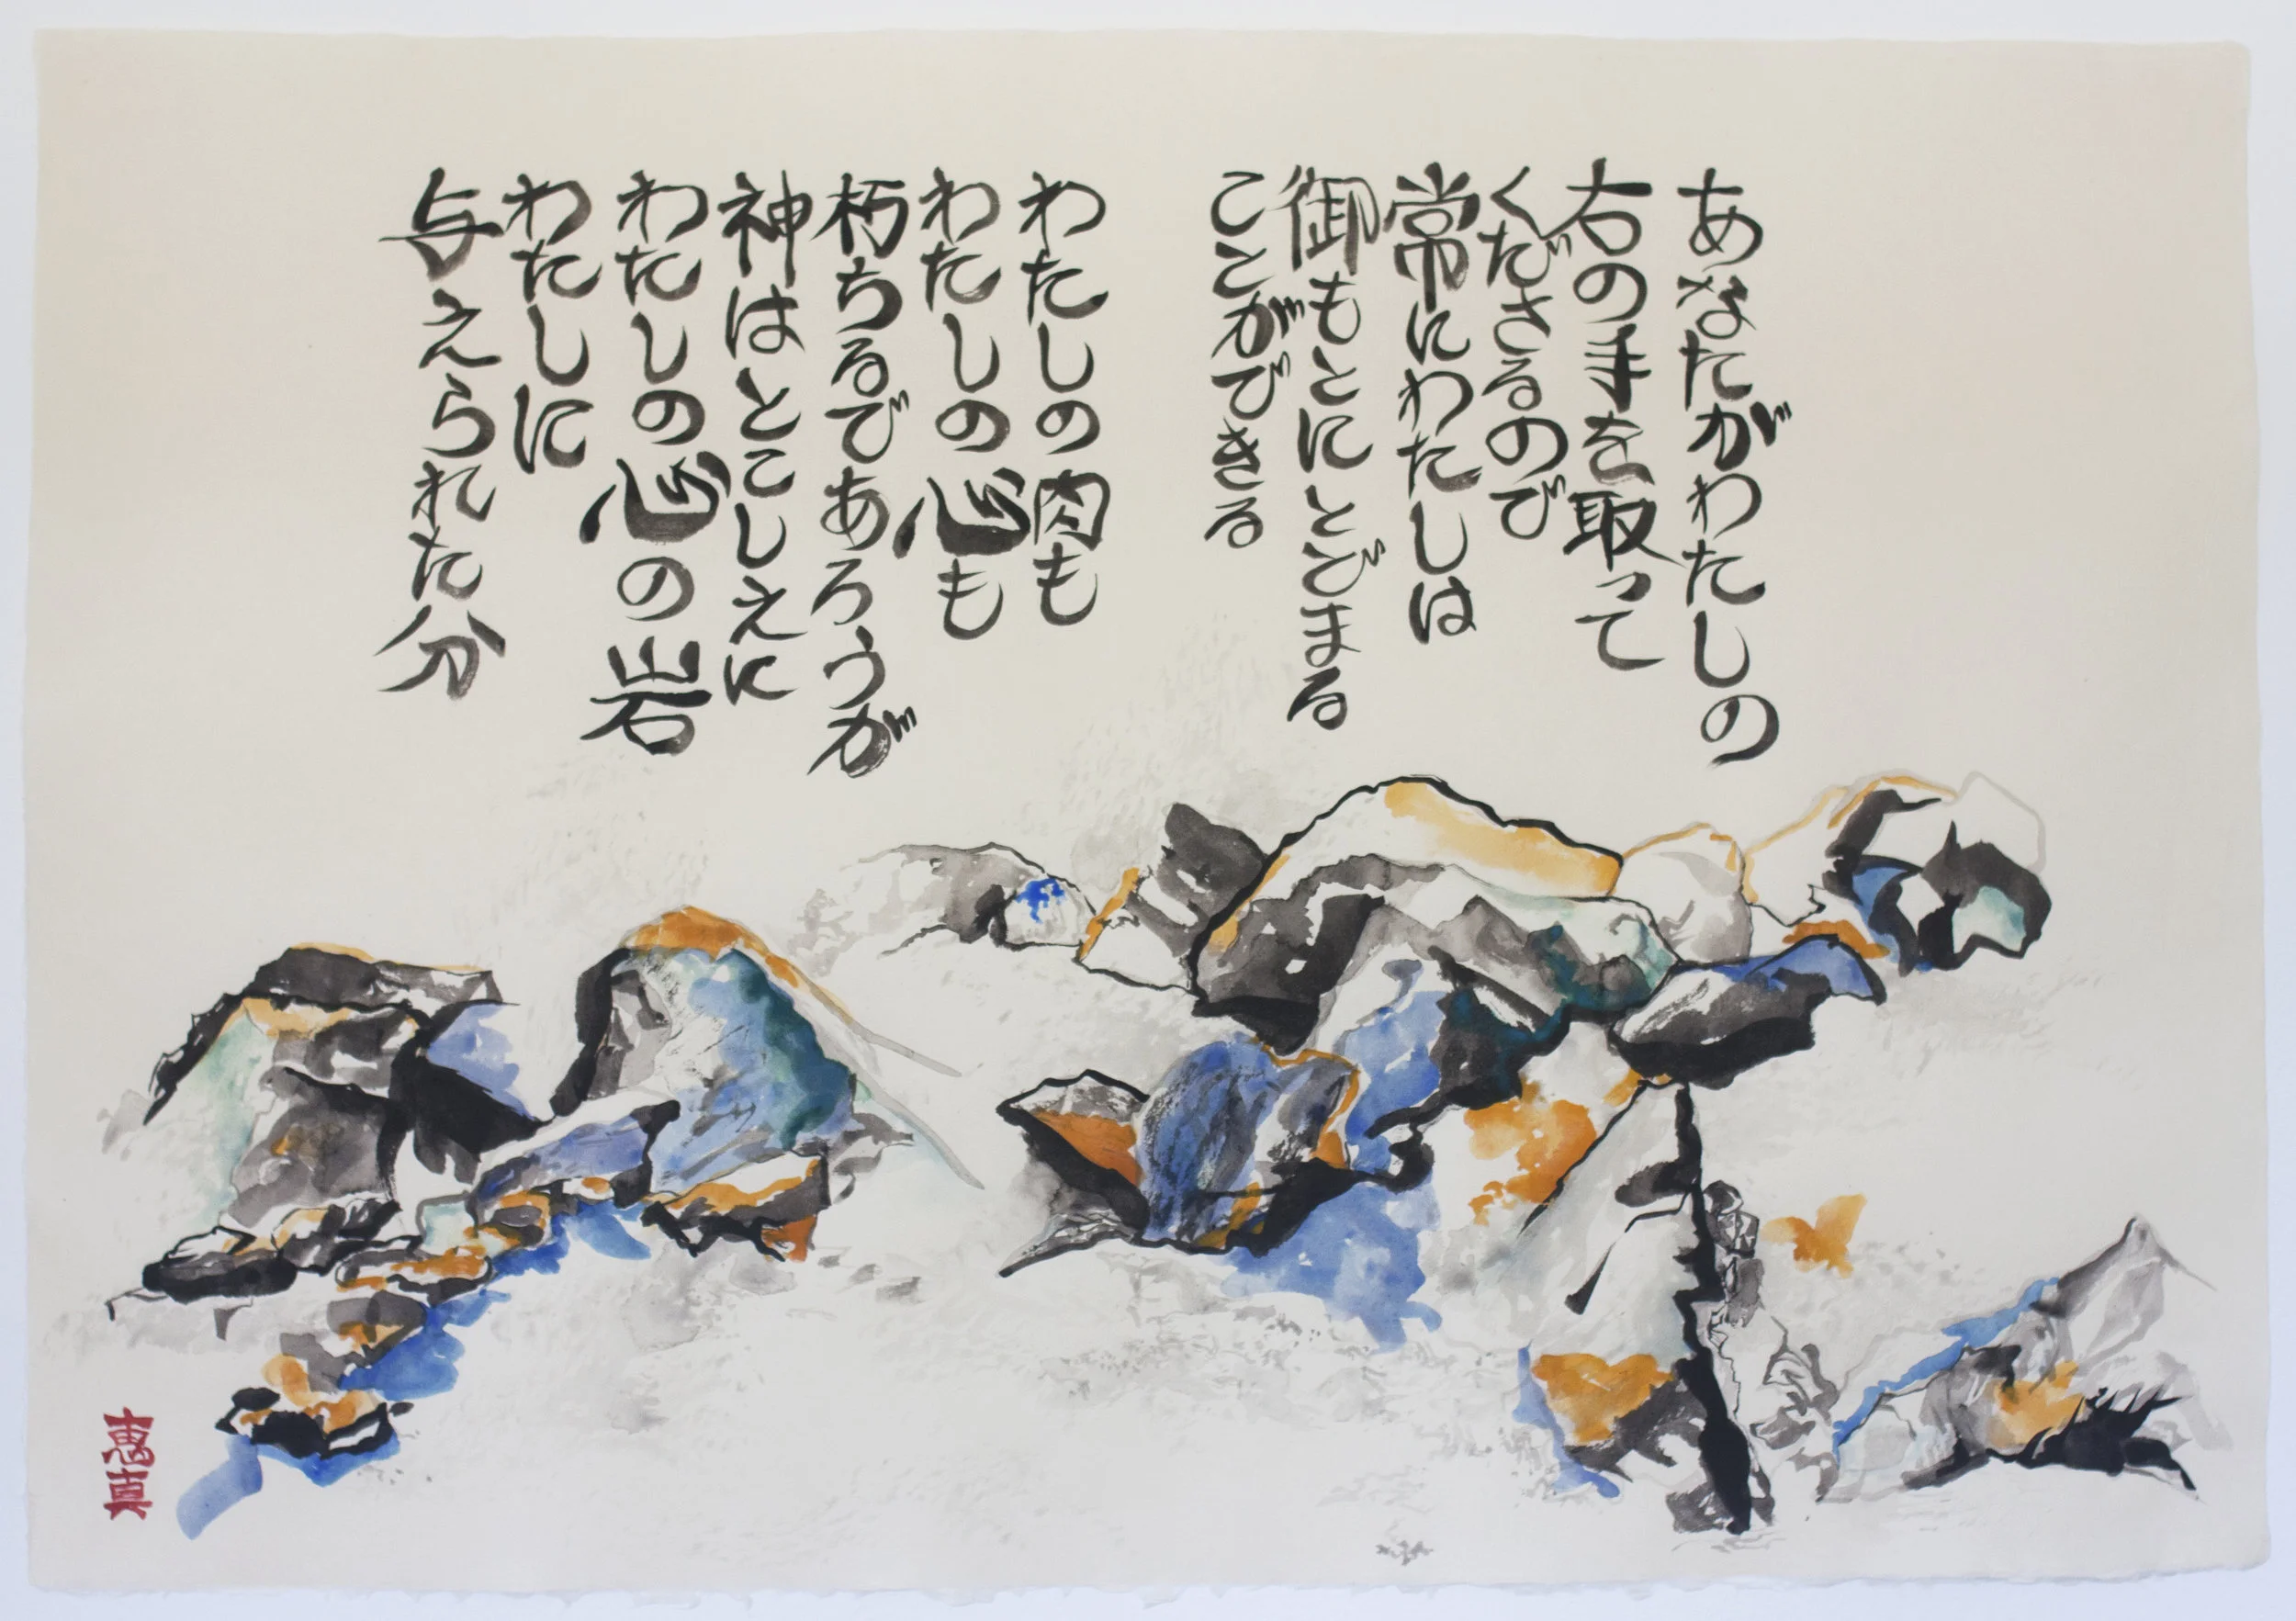 あなたがわたしの
右の手を取って
くださるので
常にわたしは
御もとにとどまる
ことができる
わたしの肉も
わたしの心も
朽ちるであろうが
神はとこしえに
わたしの心の岩
わたしに
与えられた分
恵真